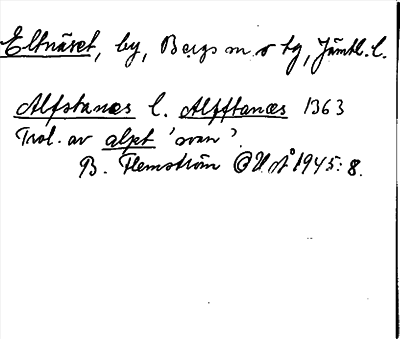 Eltnäset, by, Bergs sn o tg, Jämtl. l.
Alfstanæs l. Alfftanæs 1363
Trol. av alpt 'svan'.
B. Flemström OUÅ 1945: 8.